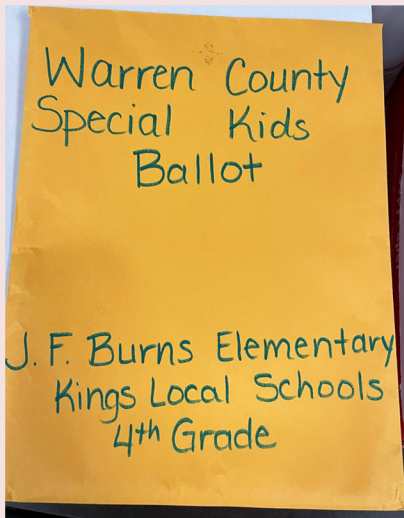 Warren County
Special Kids
Ballot
J. F. Burns Elementary
Kings Local Schools
4th Grade